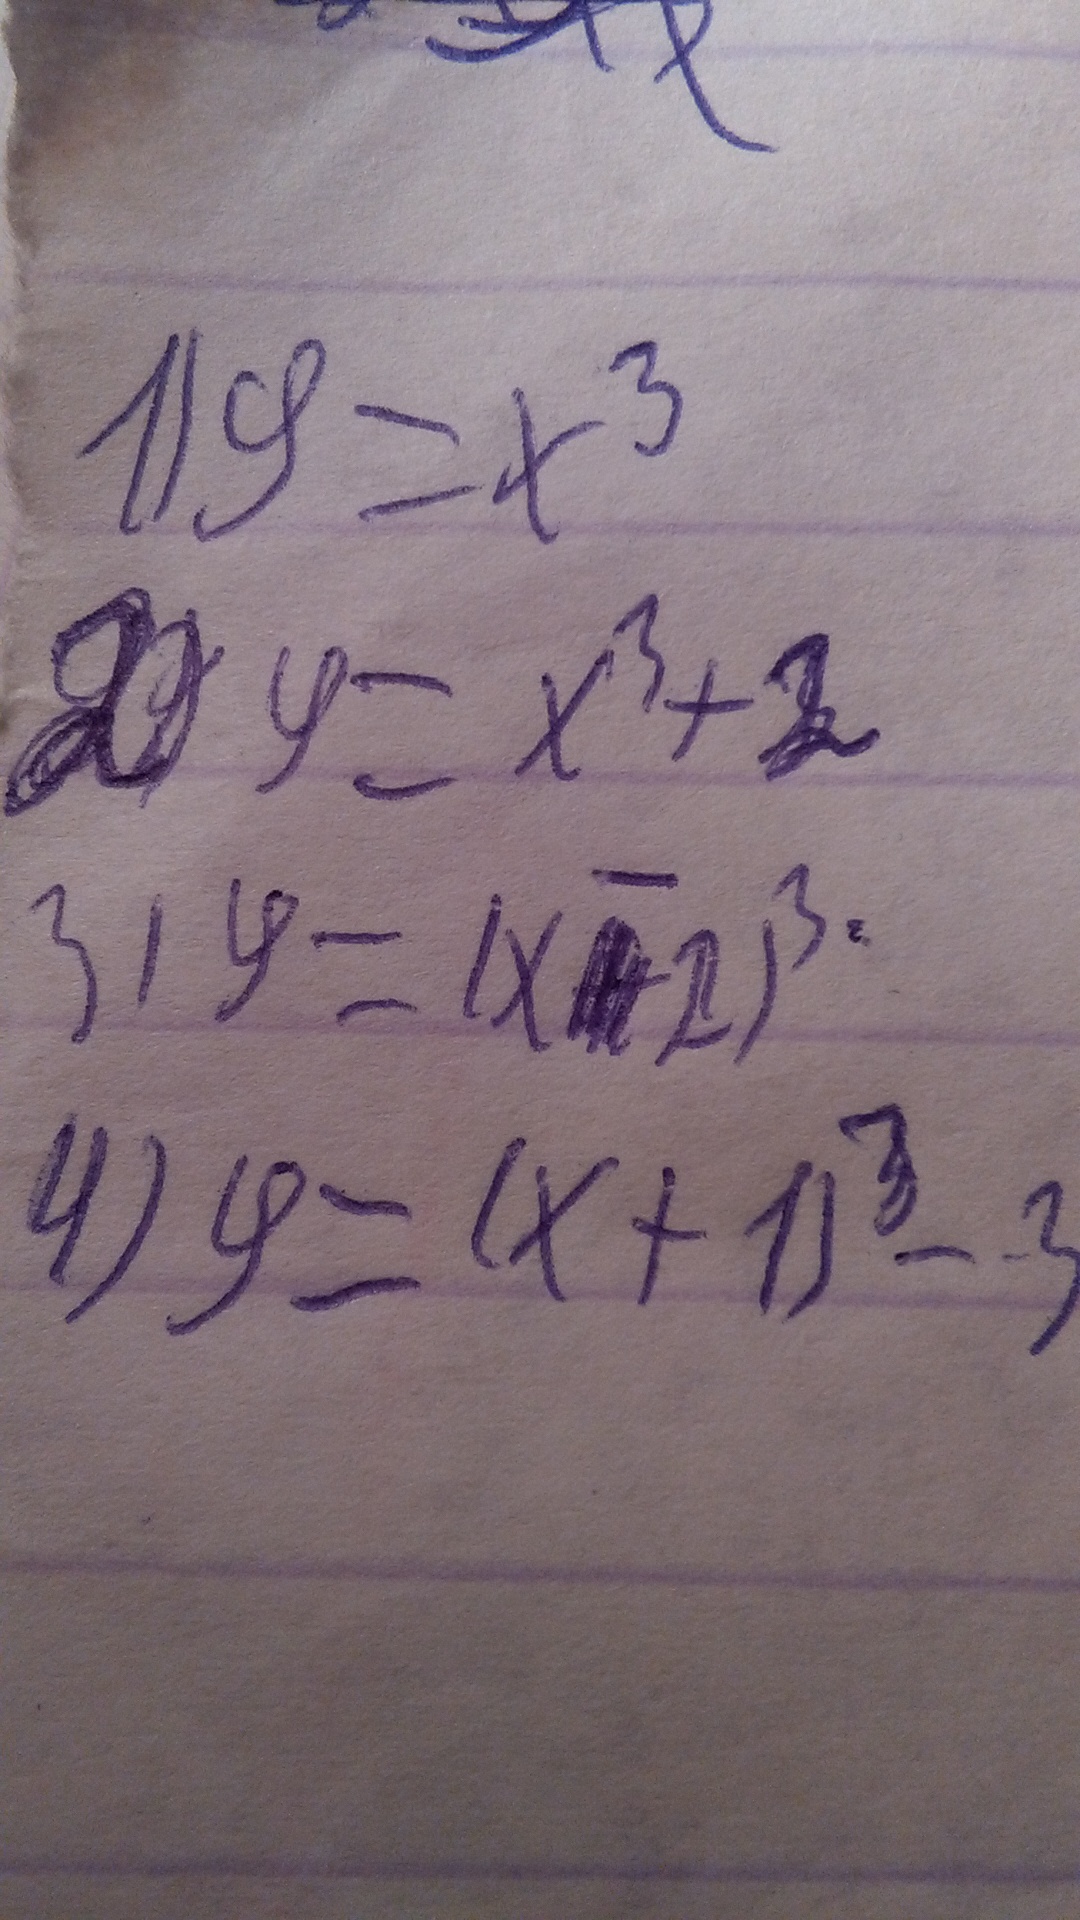 1) y = x³
2) y = x³ + 2
3) y = (x - 2)³.
4) y = (x + 1)³ - 3